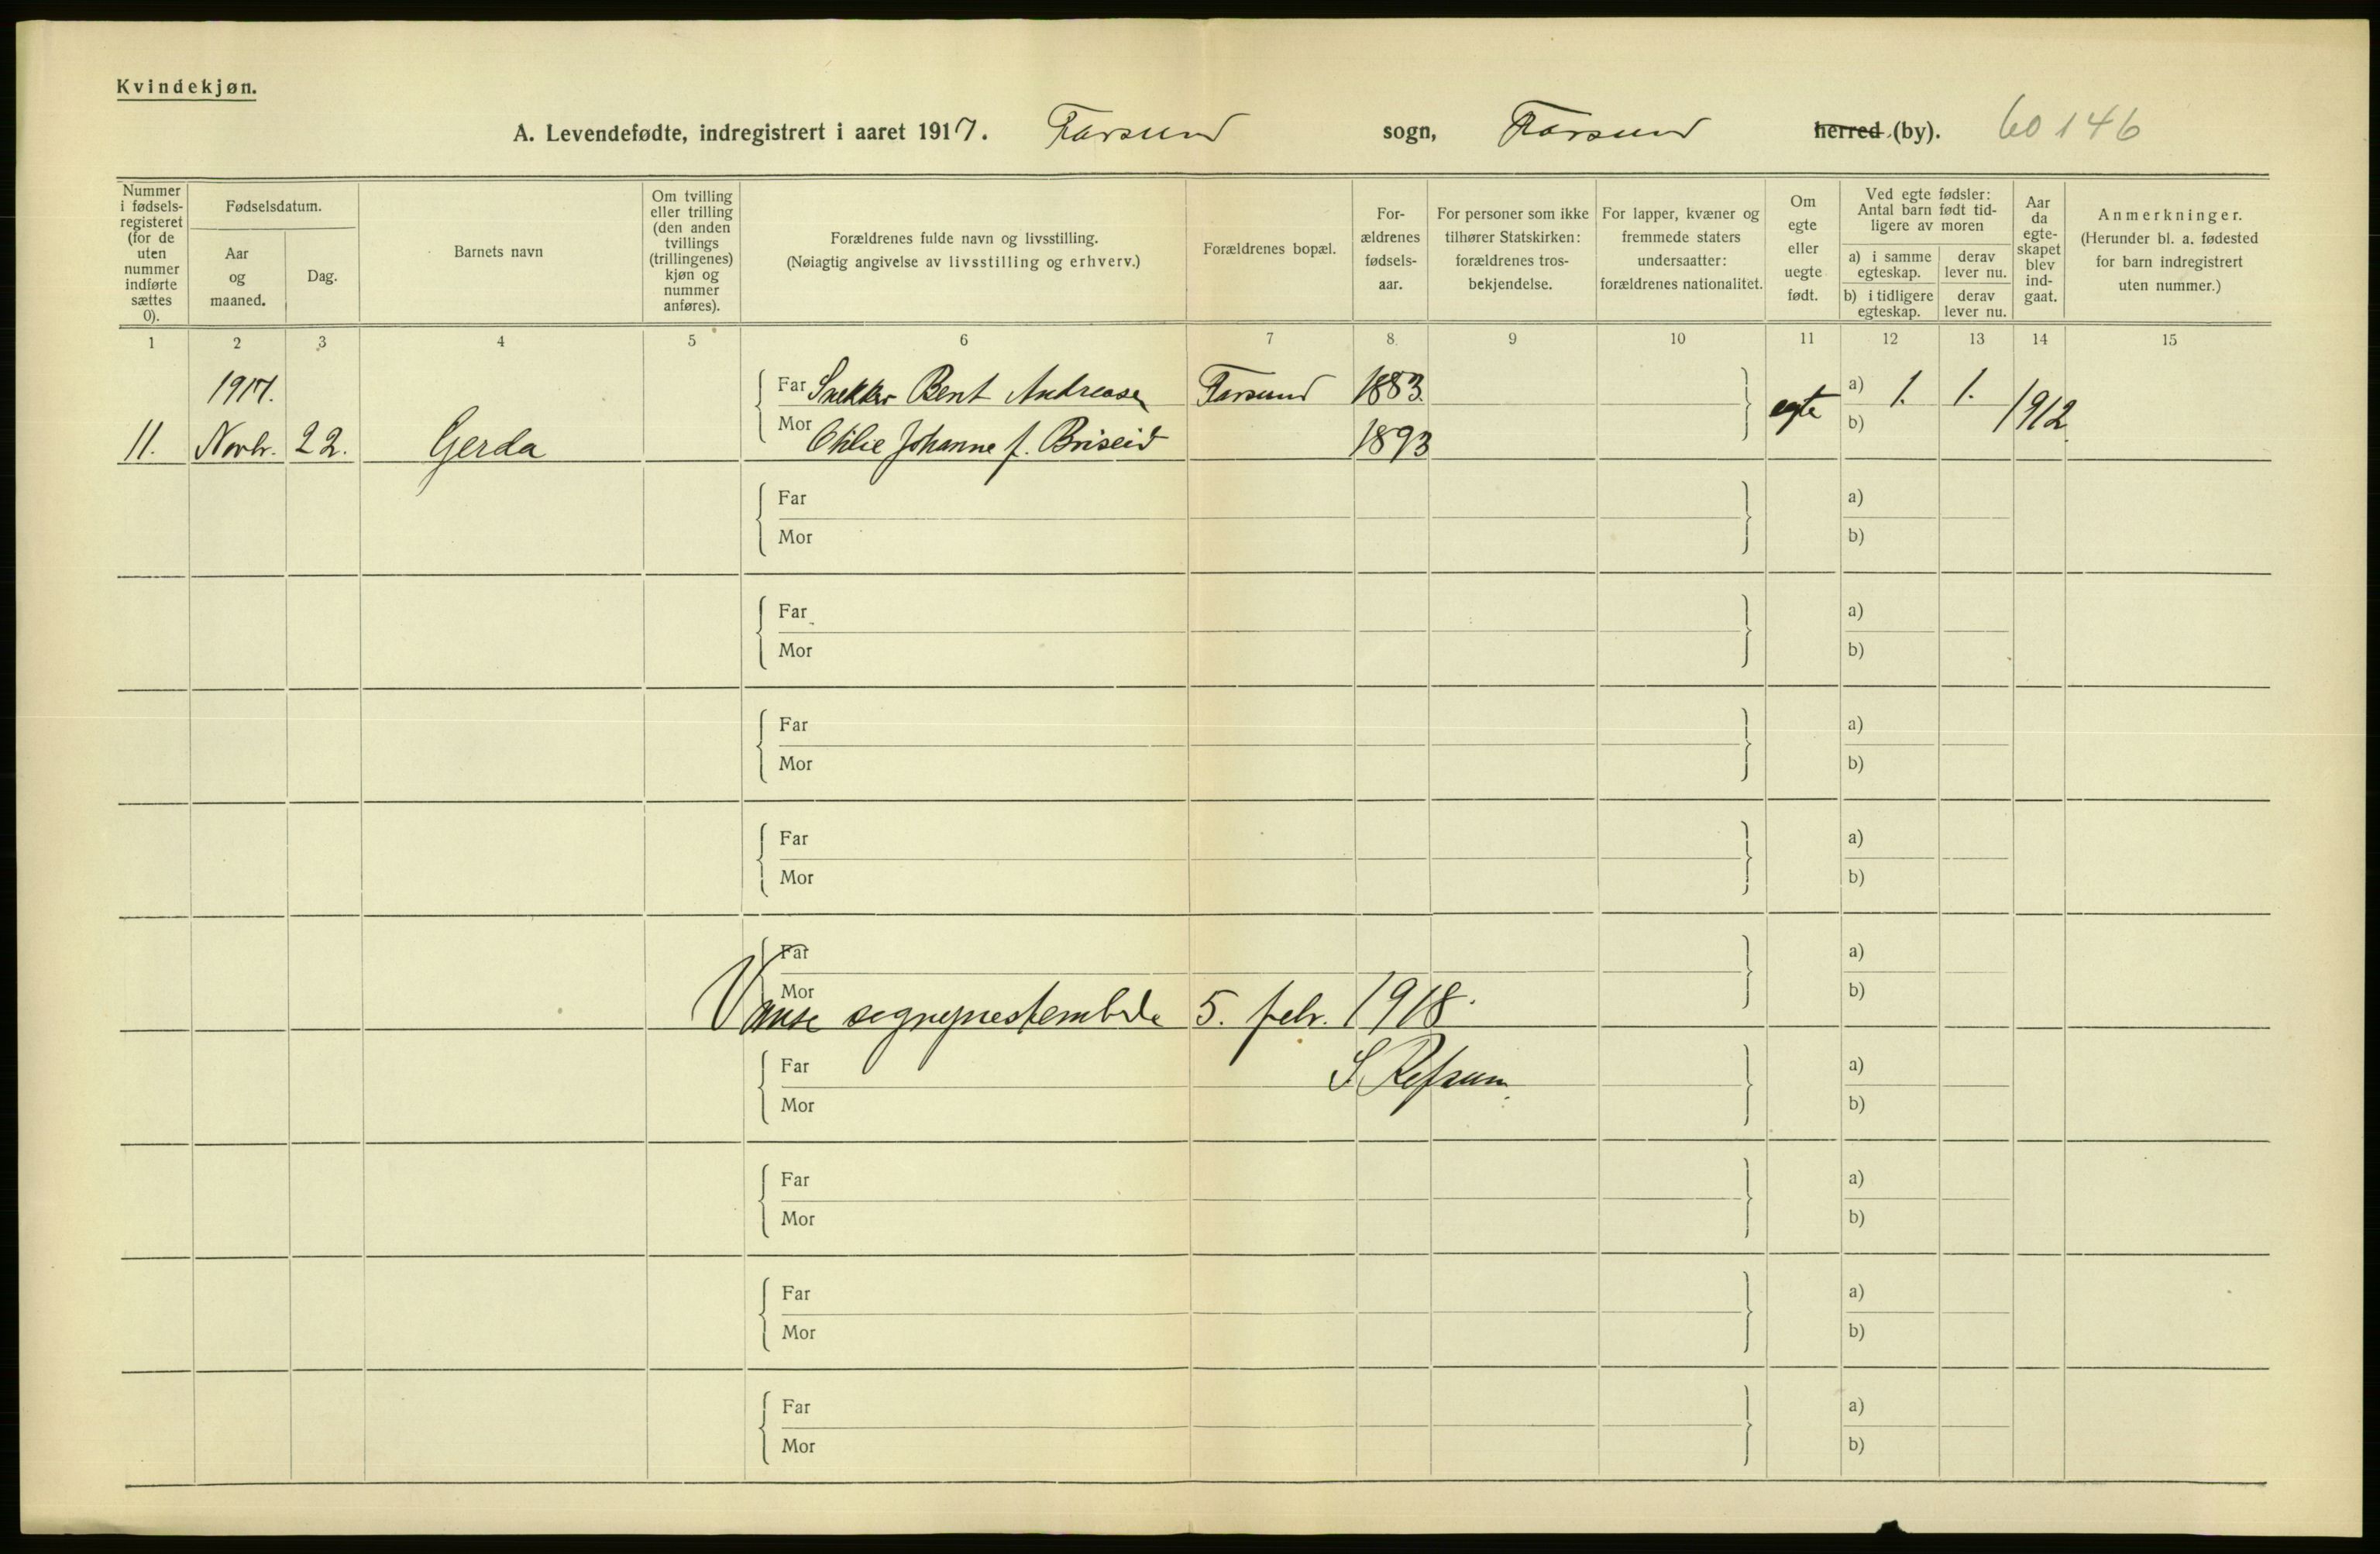 Kvindekjøn.
A. Levendefødte, indregistrert i aaret 1917. Farsund sogn, Farsund herred (by). 60 146
Nummer i fødsels-registeret (for de uten nummer indførte sættes 0).
Fødselsdatum.
Aar og maaned.
Dag.
Barnets navn
Om tvilling eller trilling (den anden tvillings (trillingenes) kjøn og nummer anføres).
Forældrenes fulde navn og livsstilling.
(Nøiagtig angivelse av livsstilling og erhverv.)
Forældrenes bopæl.
For-ældrenes fødsels-aar.
For personer som ikke tilhører Statskirken: forældrenes tros-bekjendelse.
For lapper, kvæner og fremmede staters undersaatter: forældrenes nationalitet.
Om egte eller uegte født.
Ved egte fødsler: Antal barn født tid-ligere av moren
a) i samme egteskap.
derav lever nu.
b) i tidligere egteskap.
derav lever nu.
Aar da egte-skapet blev ind-gaat.
Anmerkninger.
(Herunder bl. a. fødested for barn indregistrert uten nummer.)
1 2 3 4 5 6 7 8 9 10 11 12 13 14 15
1917. Far Snekker Bent Andreasen Farsund 1883. egte a) 1. 1. 1912.
11. Novbr. 22. Gerda Mor Othlie Johanne f. Briseid 1893 b)
Far a)
Mor b)
Far a)
Mor b)
Far a)
Mor b)
Far a)
Mor b)
Far a)
Mor b)
Vanse sogneprestembede 5. febr. 1918.
Far S Refsum. a)
Mor b)
Far a)
Mor b)
Far a)
Mor b)
Far a)
Mor b)